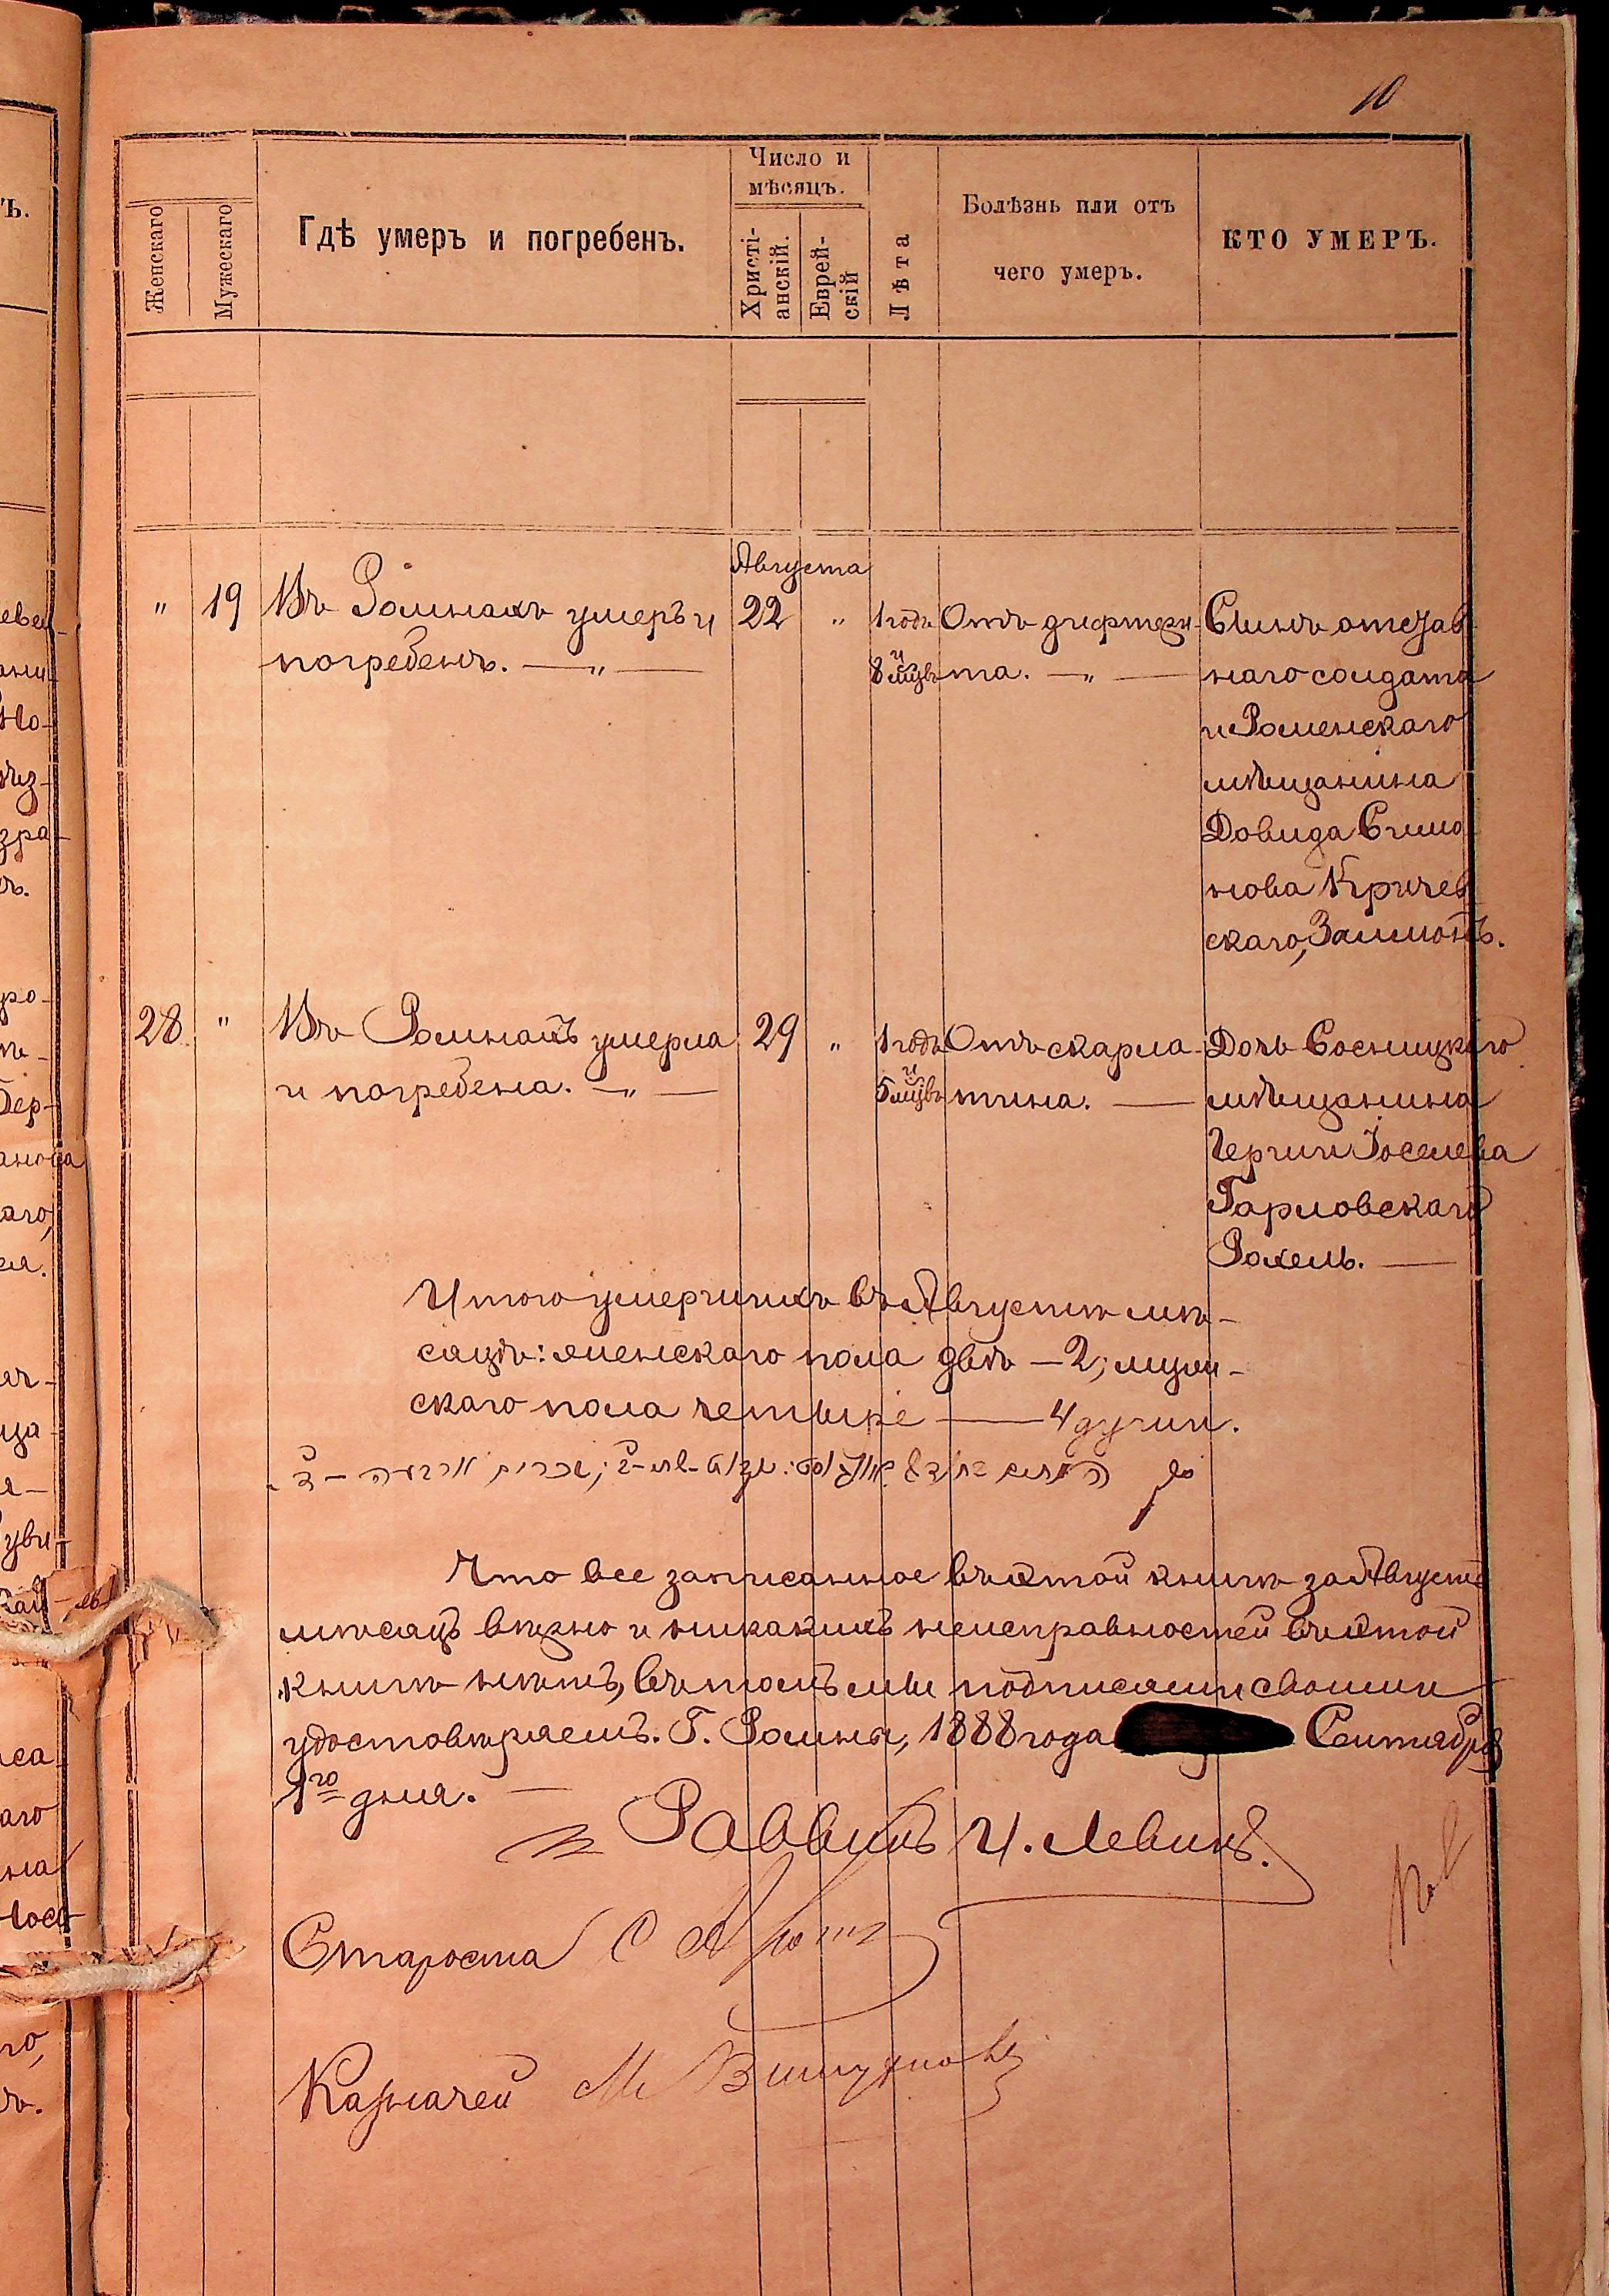 10
Женскаго
Мужескаго
Гдѣ умеръ и погребенъ.
Число и
мѣсяцъ.
Христі-
анскій.
Еврей-
скій
Лѣта
Болѣзнь или отъ
чего умеръ.
КТО УМЕРЪ.
Августа
" 19 Въ Ромнахъ умеръ и 22 " 1 годъ Отъ дифтери- Сынъ отстав-
погребенъ. — " — 8 и мцвъ та. — " — наго солдата
и Роменскаго
мѣщанина
Довида Симо
нова Кричев
скаго, Залмонъ.
28 " Въ Ромнахъ умерла 29 " 1 годъ Отъ скарла- Дочь Сосницкаго
и погребена. — " — 5 и мцвъ тина. — мѣщанина
Іоселева
Рохель. —
Итого умершихъ въ Августѣ мѣ-
сяцѣ: женскаго пола двѣ — 2; мужи-
скаго пола четыре — 4 души.
Что все записанное въ этой книгѣ за Августъ
мѣсяцъ вѣрно и никакихъ неисправностей въ этой
книгѣ нѣтъ, въ томъ мы подписями своими
удостовѣряемъ. Г. Ромны, 1888 года Сентября
1го дня. —
Раввинъ И. Левинъ.
Староста С
Казначей М